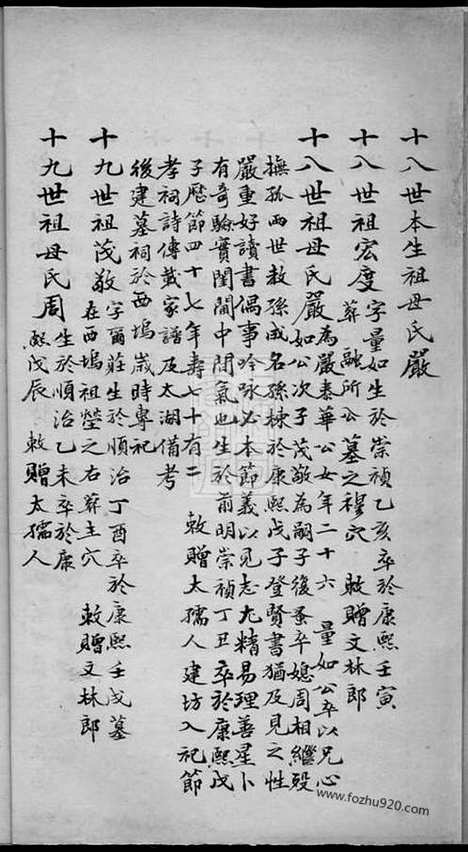 十八世本生祖母氏嚴
十八世祖宏度字量如生於崇禎乙亥卒於康熙壬寅
葬融所公墓之穆穴 敕贈文林郎
十八世祖母氏嚴為嚴泰華公女年二十六 量如公卒以兄心
如公次子茂敬為嗣子後蚤卒媳周相繼歿
撫孫兩世教孫成名孫棟於康熙戊子登賢書猶及見之性
嚴重好讀書偶事吟咏必本節義以見志尤精易理善星卜
有奇驗實閨閫中間氣也生於前明崇禎丁丑卒於康熙戊
子歷節四十七年壽七十有二 敕贈太孺人建坊入祀節
孝祠詩傳載家譜及太湖備考
後建墓祠於西塢歲時專祀
十九世祖茂敬字爾莊生於順治丁酉卒於康熙壬戌墓
在西塢祖塋之右葬主穴 敕贈文林郎
十九世祖母氏周生於順治乙未卒於康
熙戊辰 敕贈太孺人
www.fozhu920.com